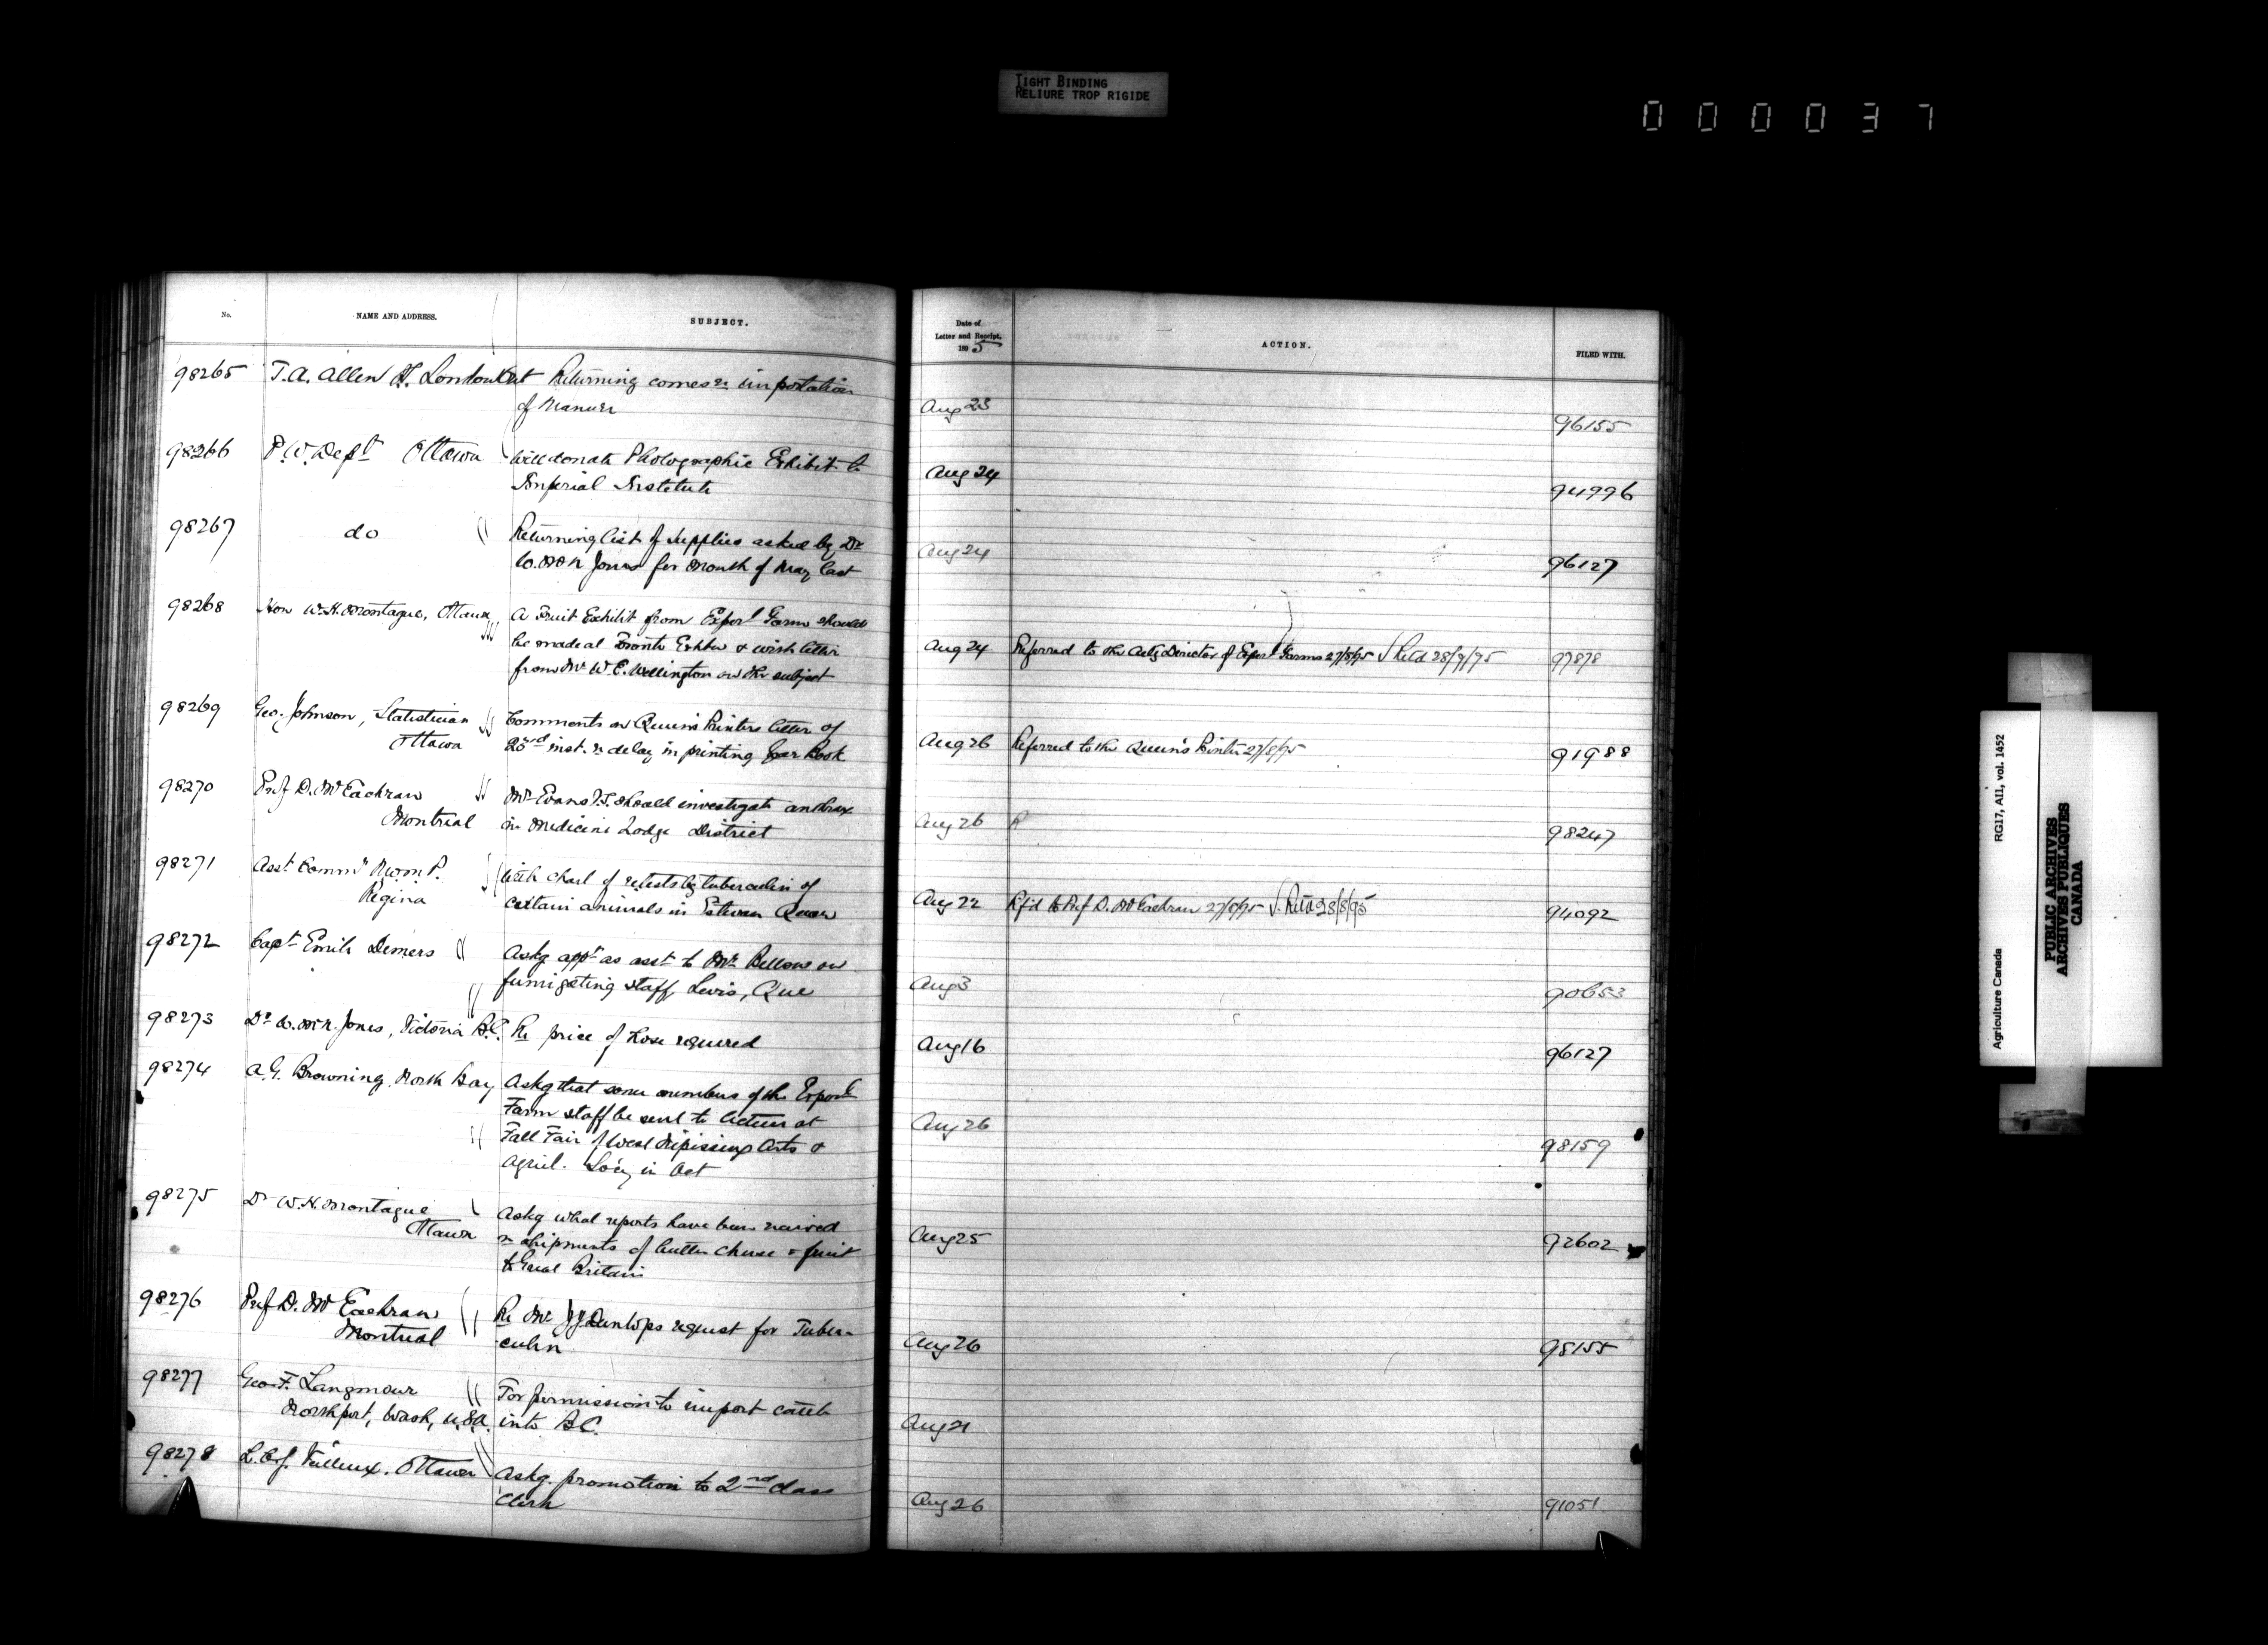 TIGHT BINDING
RELIURE TROP RIGIDE
000037
No.
NAME AND ADDRESS.
SUBJECT.
Date of
Letter and Receipt.
1895
ACTION.
FILED WITH.
98265 T.A. Allen London Ont Returning comes re importation
of Manure
Aug 23
96155
98266 P.W. Dept Ottawa will donate Photographic Exhibit to
Imperial Institute
Aug 24
94996
98267 do Returning list of supplies asked by Dr
W. McN Jones for Month of May last
Aug 24
96127
98268 Hon W.H. Montague, Ottawa A Fruit Exhibit from Experl Farm should
be made at Toronto Exhbn & with letter
from Mr W.E. Wellington on the subject
Aug 24 Referred to the Actg Director of Experl Farms 27/8/95 Retd 28/9/95 97878
98269 Geo. Johnson, Statistician Comments on Queen's Printers letter of
Ottawa 23rd inst. re delay in printing Year Book
Aug 26 Referred to the Queen's Printer 27/8/95 91988
98270 Prof D. McEachran Mr Evans V.S. should investigate anthrax
Montreal in Medicine Lodge District
Aug 26 R 98247
98271 Asst Commr N.W.M.P. With chart of retests by tuberculin of
Regina certain animals in Estevan Quar
Aug 22 Rf'd to Prof D. McEachran 27/8/95 Retd 28/8/95 94092
98272 Capt Emile Demers Askg appt as asst to Mr Belleau on
fumigating staff, Levis, Que
Aug 3
90653
98273 Dr W. McN. Jones, Victoria B.C. Re price of hose required
Aug 16 96127
98274 A.G. Browning, North Bay Askg that some members of the Experl
Farm staff be sent to lecture at
Fall Fair of West Nipissing Arts &
Agricl. Soc'y in Oct
Aug 26
98159
98275 Dr W.H. Montague Askg what reports have been received
Ottawa re shipments of butter cheese & fruit
to Great Britain
Aug 25
92602
98276 Prof D. McEachran Re Mr J.J. Dunlops request for Tuber-
Montreal culin
Aug 26 98155
98277 Geo. F. Langmour For permission to import cattle
Northport, Wash, U.S.A. into B.C.
Aug 21
98278 Ottawa Askg. promotion to 2nd class
Clerk
Aug 26 91051
Agriculture Canada RG17, AI1, vol. 1452
PUBLIC ARCHIVES
ARCHIVES PUBLIQUES
CANADA